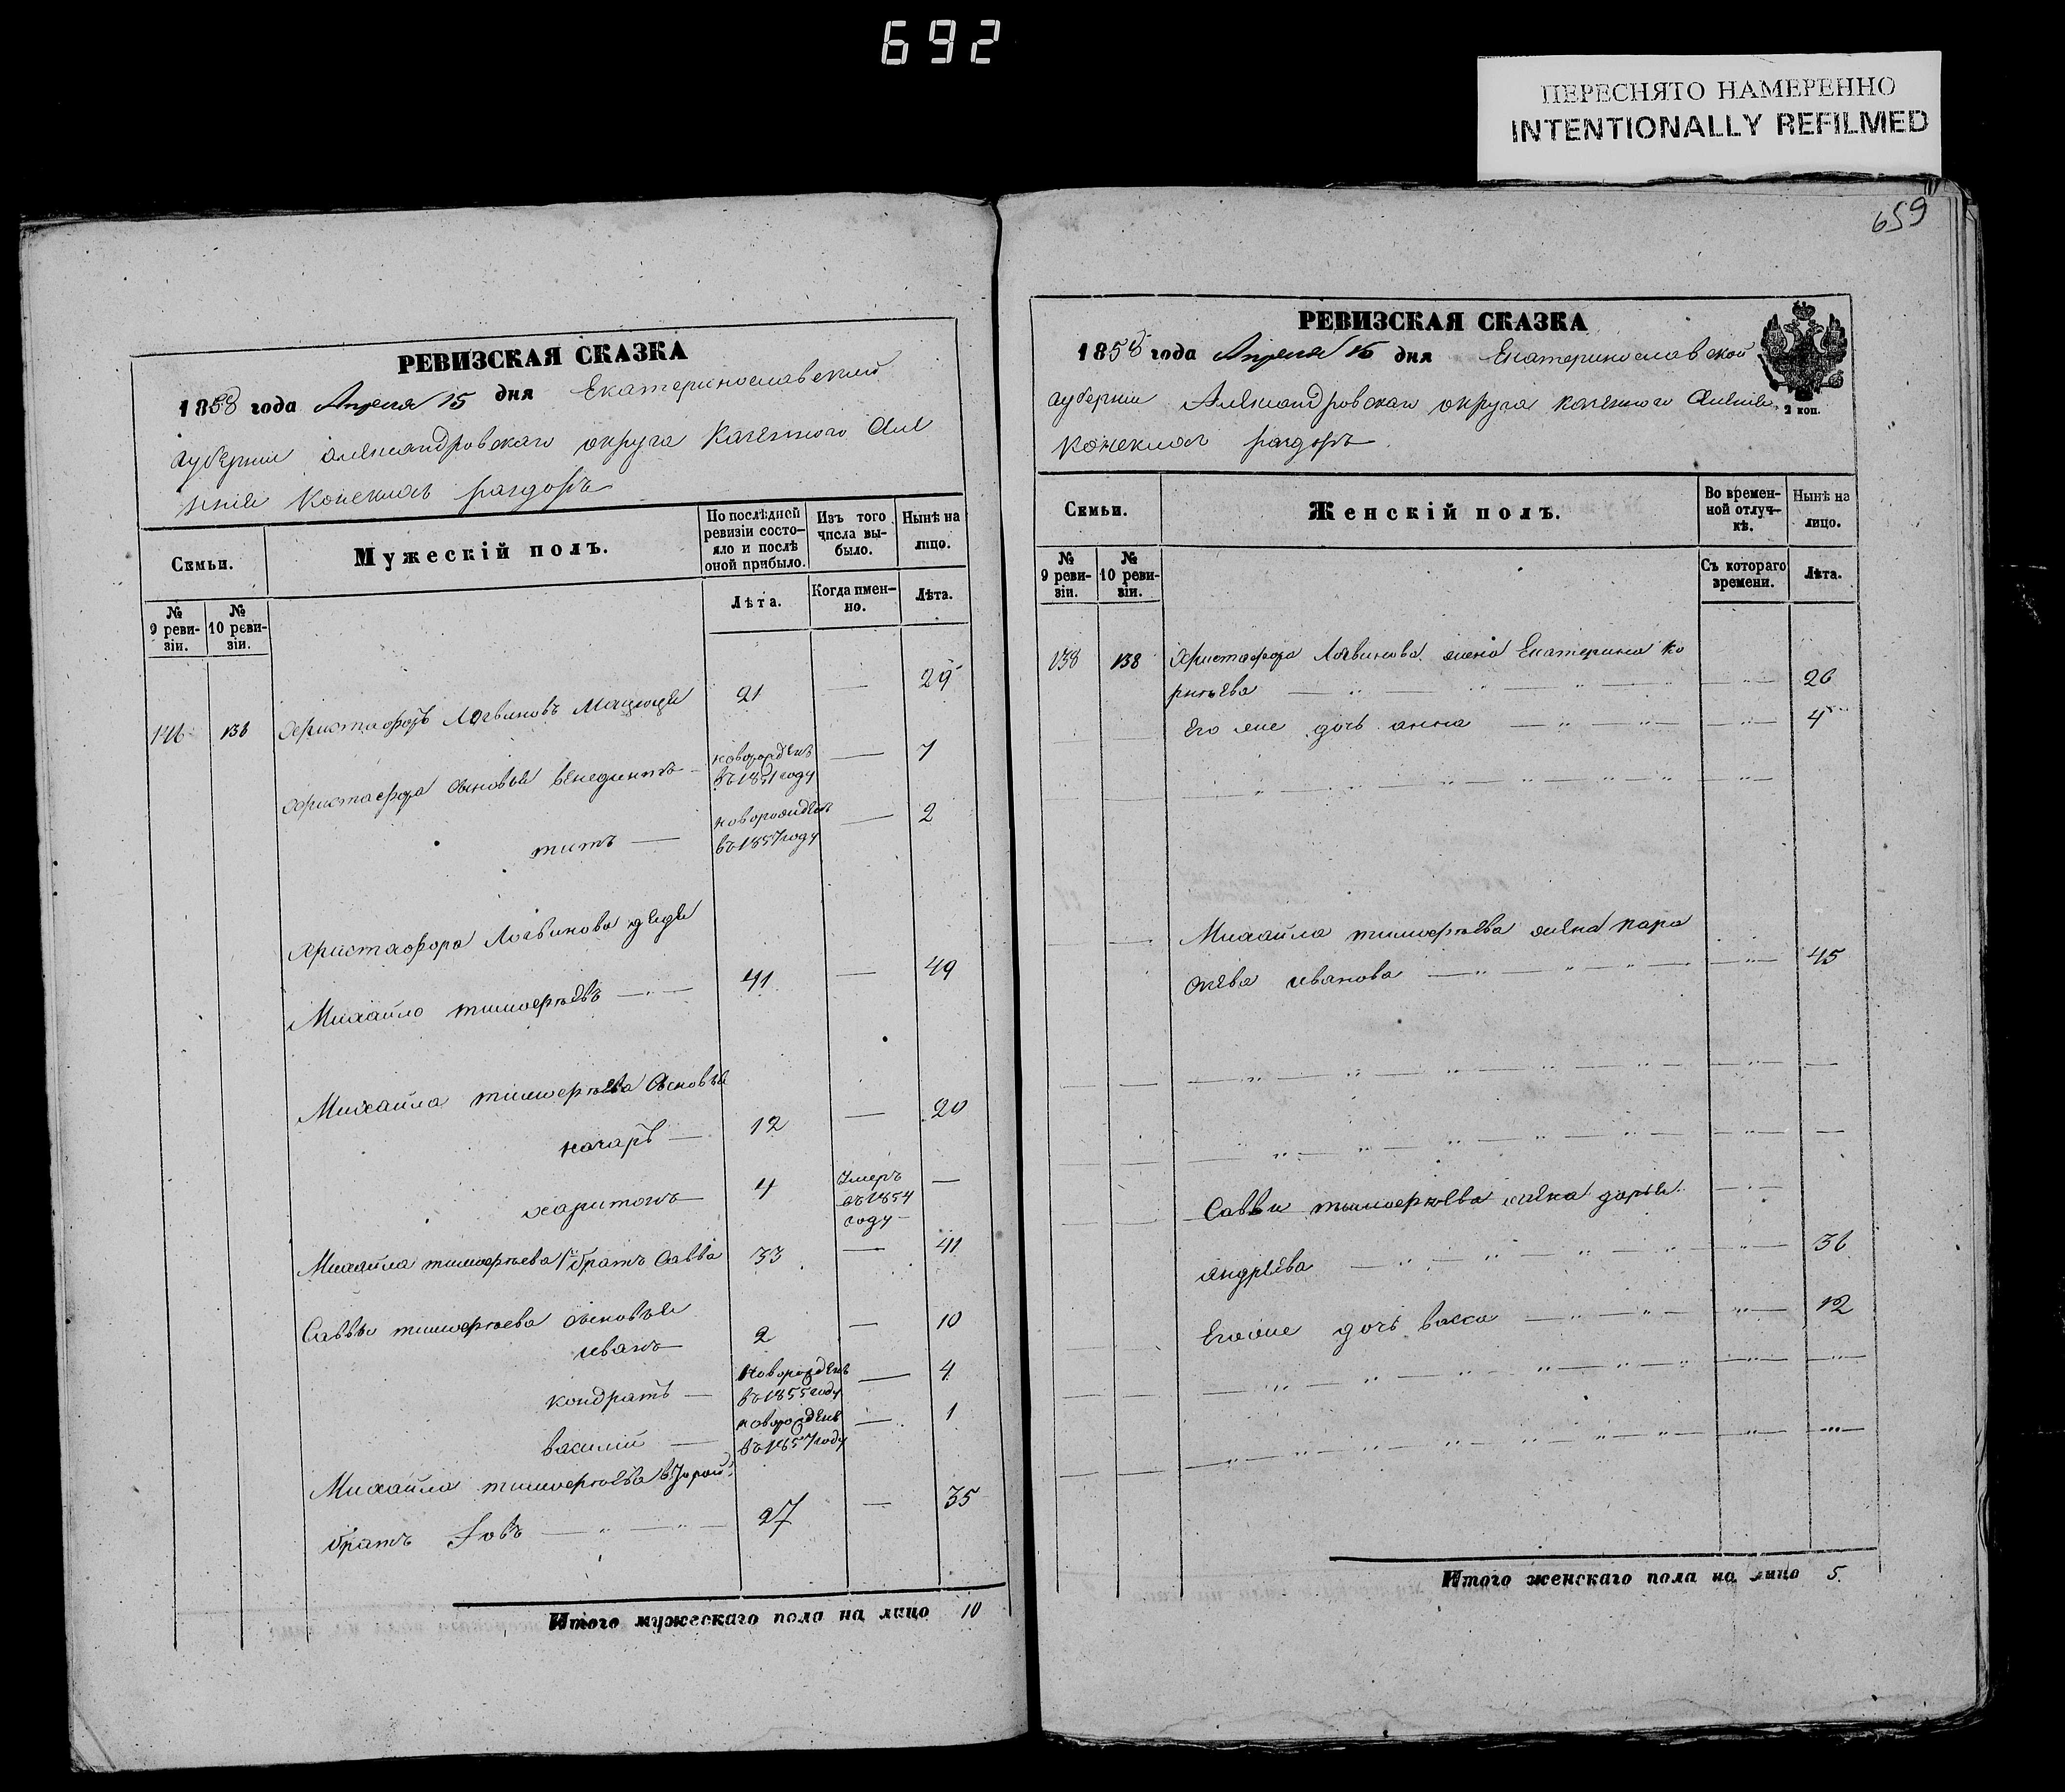 692
ПЕРЕСНЯТО НАМЕРЕННО
INTENTIONALLY REFILMED
659
РЕВИЗСКАЯ СКАЗКА
1858 года Апреля 15 дня Екатеринославской
губернии Александровскаго округа Казенного Селе
ния Конскихъ раздоръ
Семьи.
Мужескій полъ.
По послѣдней ревизіи состояло и послѣ оной прибыло.
Изъ того числа выбыло.
Нынѣ на лицо.
№ 9 ревизіи.
№ 10 ревизіи.
Лѣта.
Когда именно.
Лѣта.
138 Христафоръ Логвиновъ 21 — 29
Христафора сыновья Венедиктъ — новорожденъ въ 1851 году — 7
титъ — новорожденъ въ 1857 году — 2
Христафора Логвинова дядя
Михайло тимофѣевъ — 41 — 49
Михайла тимофѣева сыновья
назаръ — 12 — 20
харитонъ — 4 Умеръ въ 1854 году —
Михайла тимофѣева 1й братъ Савва 33 — 41
Саввы тимофѣева сыновья
иванъ — 2 — 10
кондратъ — Новорожденъ въ 1855 году — 4
василий — новорожденъ въ 1857 году — 1
Михайла тимофѣева второй
братъ Iовъ — " — " — 27 — 35
Итого мужескаго пола на лицо 10
РЕВИЗСКАЯ СКАЗКА
1858 года Апреля 15 дня Екатеринославской
губернии Александровскаго округа казенного Селения
Конскихъ раздоръ
2 коп.
Семьи.
Женскій полъ.
Во временной отлучкѣ.
Нынѣ на лицо.
№ 9 ревизіи.
№ 10 ревизіи.
Съ котораго времени.
Лѣта.
138 138 Христафора Логвинова жена Екатерина ко
рнѣева — 26
Его же дочь анна — 4
Михайла тимофѣева жена пара
скева иванова — 45
Саввы тимофѣева жена дарья
андрѣева — 36
Его же дочь васса — 12
Итого женскаго пола на лицо 5.